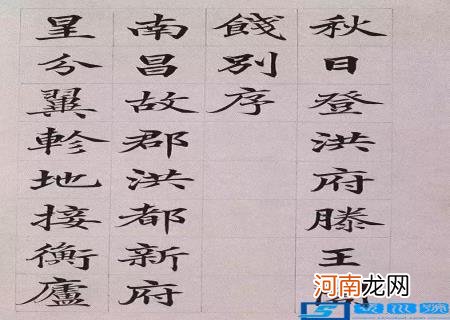 秋日登洪府滕王
餞別序
南昌故郡洪都新府
星分翼軫地接衡廬
河南龙网